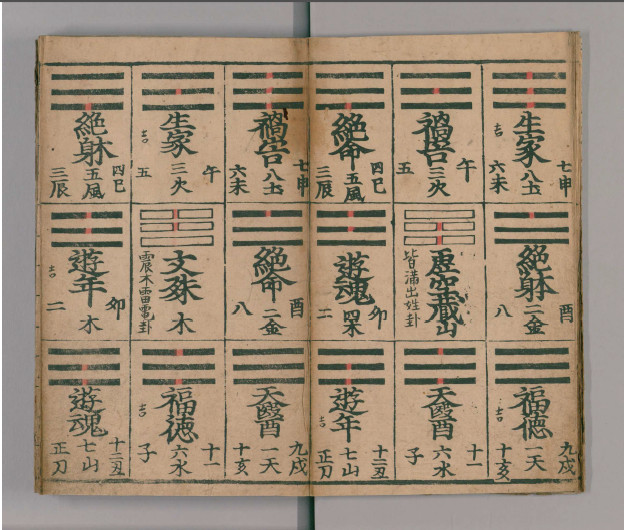 七申
生家八土
六未
吉
午
禍害三火
五
四巳
絶命五風
三辰
酉
絶躰二金
八
虚空蔵
皆満出姓卦
卯
遊魂四木
二
九戌
福徳一天
十亥
吉
十一
天醫六水
子
十二丑
遊年七山
吉
七申
禍害八土
六未
午
生家三火
五
吉
四巳
絶躰五風
三辰
酉
絶命二金
八
文殊木
震木雷電卦
卯
遊年木
二
吉
九戌
天醫一天
十亥
十一
福徳六水
子
吉
十二丑
遊魂七山